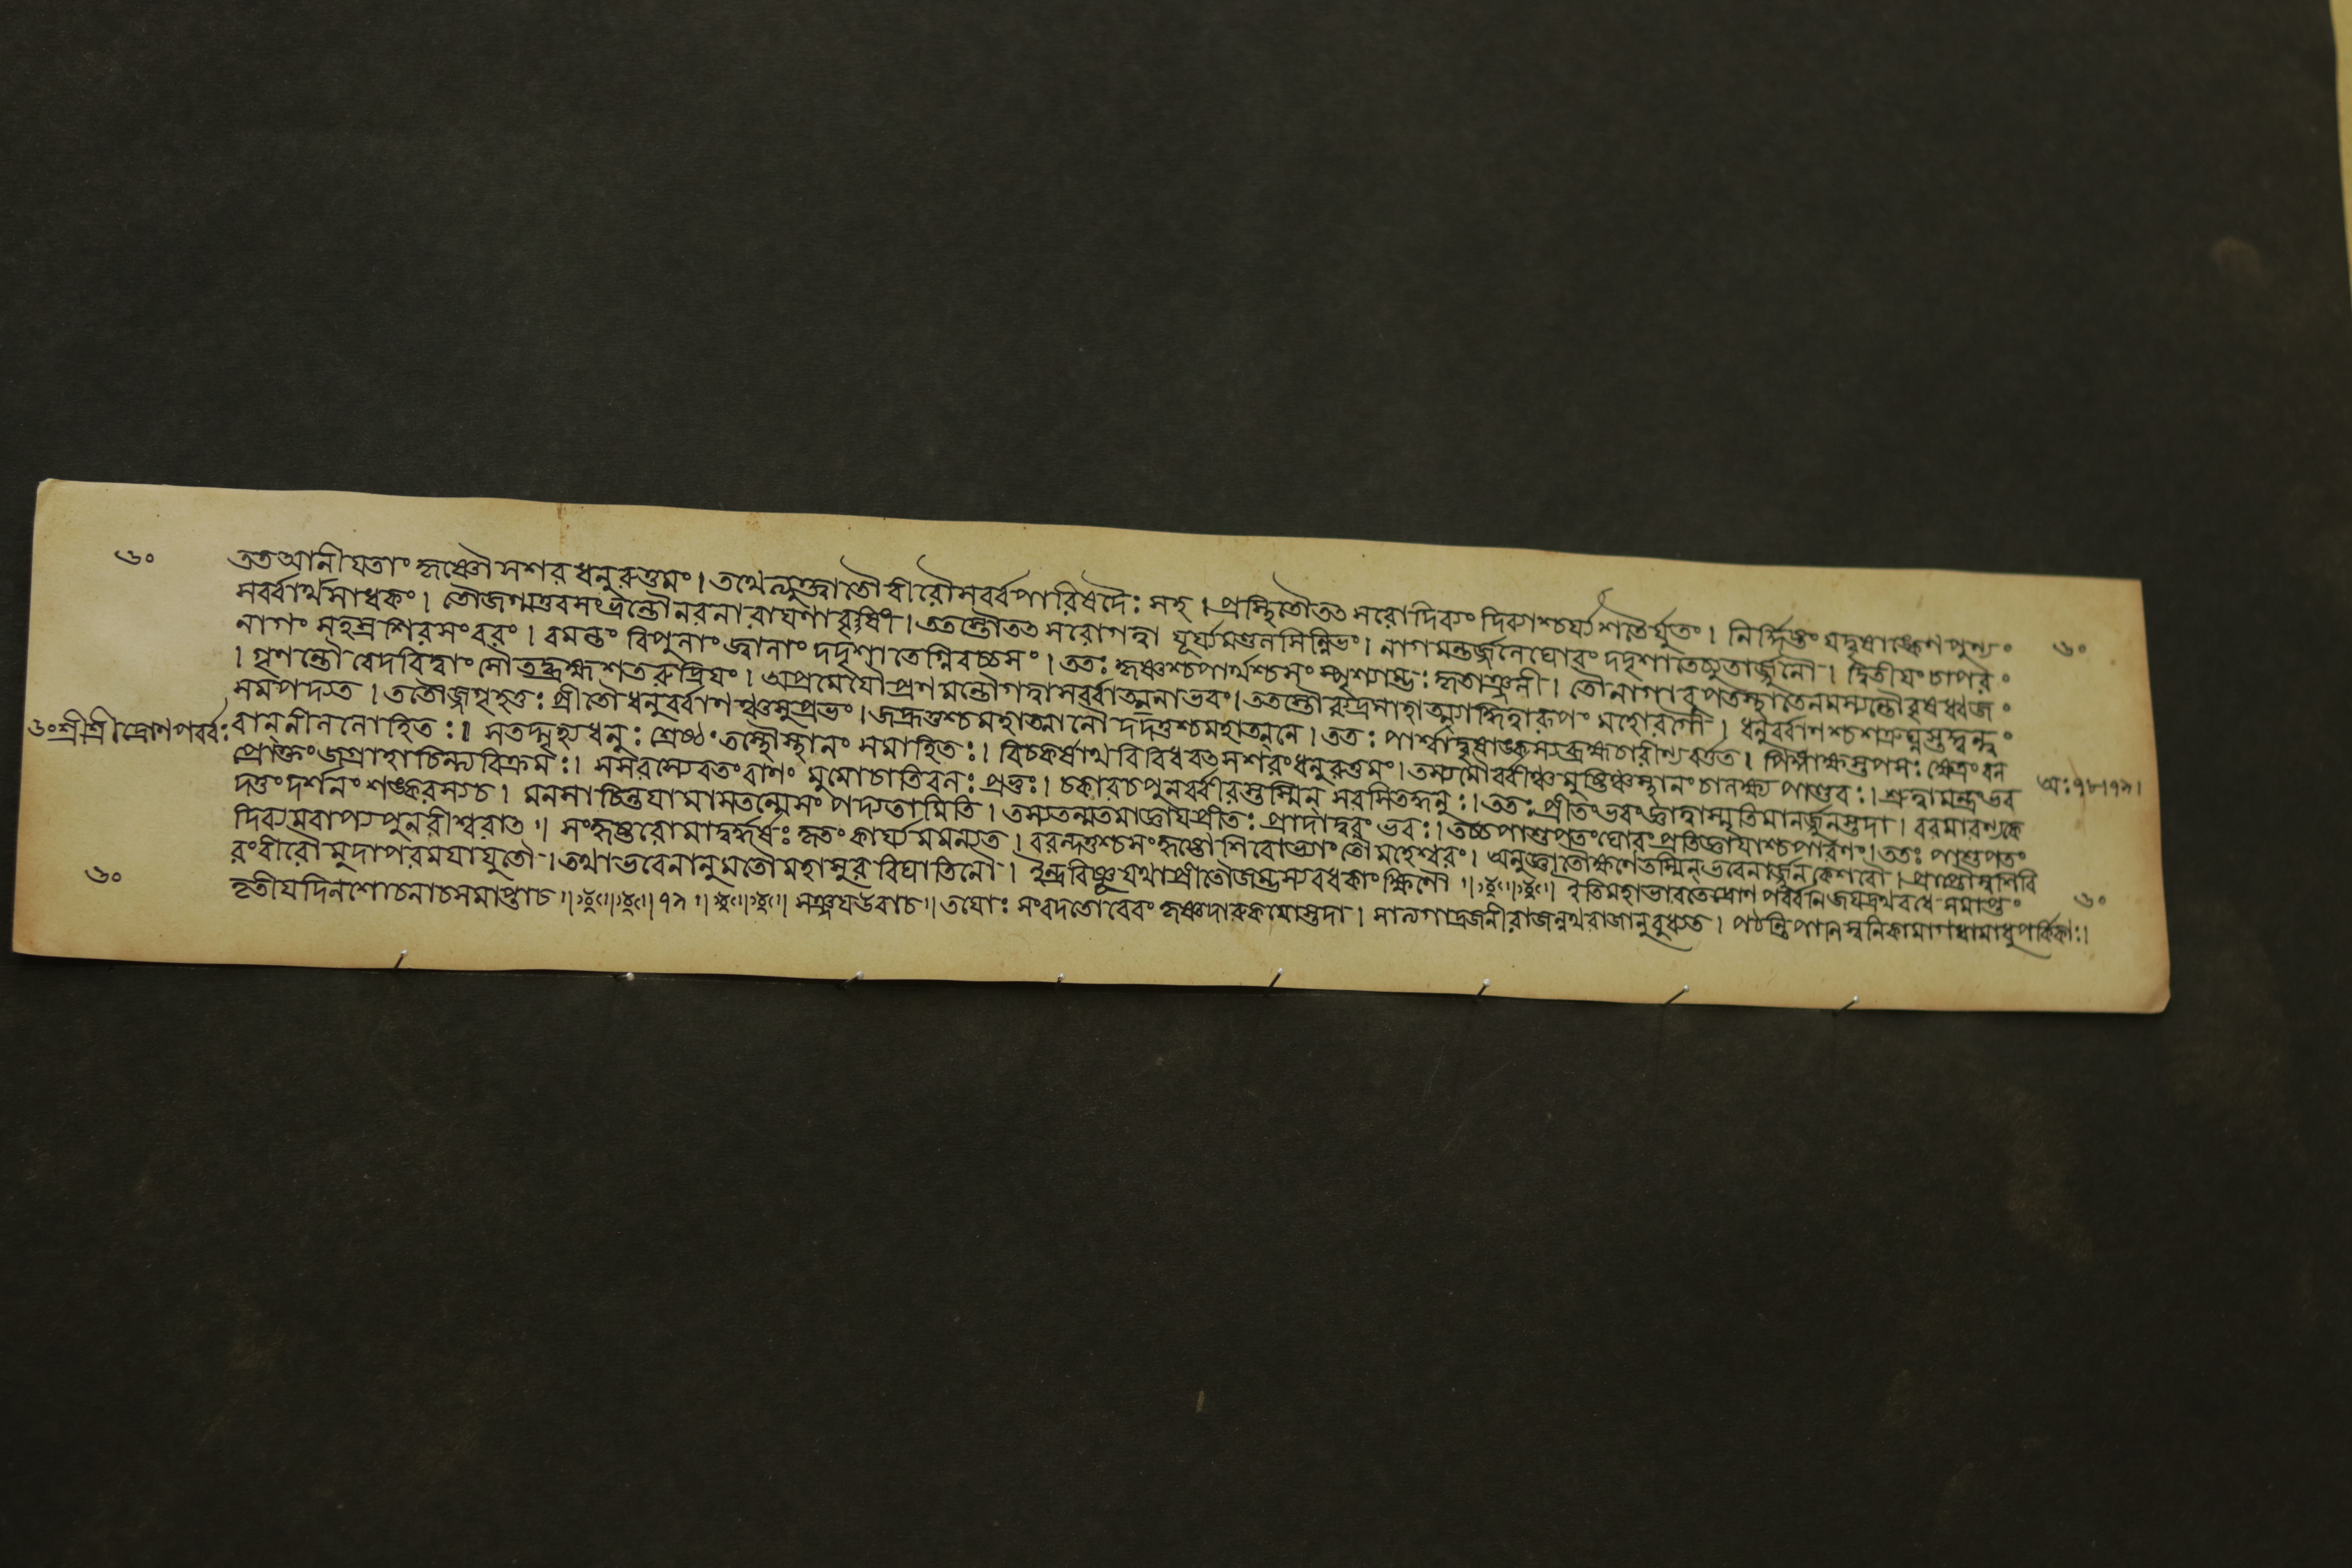 ৬০
তত আনীযতাং কৃষ্ণৌ সশর ধনুরুত্তমং। তথেত্যুক্ত্বা তৌ বীরৌ সর্ব্বপারিষদৈঃ সহ। প্রস্থিতৌ তৎ সরো দিব্যং দিব্যাশ্চর্য্য শতৈর্যুতং। নির্দ্দিষ্টং যদ্বৃষাঙ্কেণ পুণ্যং
সর্ব্বার্থসাধকং। তৌ জগ্মতুরসংভ্রান্তৌ নরনারাযণাবৃষী। ততস্তৌ তৎ সরো গত্বা সূর্য্যমণ্ডলসন্নিভং। নাগমন্তর্জ্জলে ঘোরং দদৃশাতেচ্যুতার্জ্জুনৌ। দ্বিতীযং চাপরং
৬০
নাগং সহস্রশিরসং বরং। বমন্তং বিপুলাং জ্বালাং দদৃশাতেগ্নিবর্চ্চসং। ততঃ কৃষ্ণশ্চ পার্থশ্চ সংস্পৃশ্যাম্ভঃ কৃতাঞ্জলী। তৌ নাগাবুপতস্থাতে নমস্যন্তৌ বৃষধ্বজং
। গৃণন্তৌ বেদবিদ্বাংসৌ তদ্ব্রহ্ম শতরুদ্রিযং। অপ্রমেযৌ প্রণমন্তৌ গত্বা সর্ব্বাত্মনা ভবং। ততস্তৌ রুদ্রমাহাত্ম্যাদ্ধিত্বা রূপং মহোরগৌ। ধনুর্ব্বাণশ্চ শত্রুঘ্নস্তদ্দ্বন্দ্বং
সমপদ্যত। ততৌ জগৃহতুঃ প্রীতৌ ধনুর্ব্বাণঞ্চ সুপ্রভং। আজহ্রতুশ্চ মহাত্মানৌ দদতুশ্চ মহাত্মনে। ততঃ পার্শ্বাদ্বৃষাঙ্কস্য ব্রহ্মচারী ন্যবর্ত্তত। পিঙ্গাক্ষস্তপসঃ ক্ষেত্রং বল
৬০ শ্রীশ্রীদ্রোণপর্ব্বঃ
বান্ নীললোহিতঃ। স তদ্গৃহ্য ধনুঃ শ্রেষ্ঠং তস্থৌ স্থানং সমাহিতঃ। বিচকর্ষাথ বিবিধবৎ সশরং ধনুরুত্তমং। তস্য মৌর্ব্বীঞ্চ মুষ্টিঞ্চ স্থানং চালক্ষ্য পাণ্ডবঃ। শ্রুত্বা মন্ত্রং ভব
অঃ ৭৮।৭৯।
প্রোক্তং জগ্রাহাচিন্ত্যবিক্রমঃ। স সরস্যেব তং বাণং মুমোচাতিবলঃ প্রভুঃ। চকার চ পুনর্ব্বীরস্তস্মিন্ সরসি তদ্ধনুঃ। ততঃ প্রীতং ভবং জ্ঞাত্বা স্মৃতিমানর্জ্জুনস্তদা। বরমারণ্যকে
দত্তং দর্শনং শঙ্করস্য চ। মনসা চিন্তযামাস তন্মে সংপদ্যতামিতি। তস্য তন্মতমাজ্ঞায প্রীতঃ প্রাদাদ্বরং ভবঃ। তচ্চ পাশুপতং ঘোরং প্রতিজ্ঞাযাশ্চ পারণং। ততঃ পাশুপতং
দিব্যমবাপ্য পুনরীশ্বরাৎ। সংহৃষ্টরোমা দুর্দ্ধর্ষঃ কৃতং কার্য্যমমন্যত। ববন্দতুশ্চ সংহৃষ্টৌ শিরোভ্যাং তৌ মহেশ্বরং। অনুজ্ঞাতৌ ক্ষণে তস্মিন্ ভবেনার্জ্জুনকেশবৌ। প্রাপ্তৌ স্বশিবি
রং বীরৌ মুদা পরমযা যুতৌ। তথা ভবেনানুমতৌ মহাসুরবিঘাতিনৌ। ইন্দ্রবিষ্ণূ যথা প্রীতৌ জম্ভস্য বধকাংক্ষিণৌ॥ ইতি মহাভারতে দ্রোণপর্ব্বনি জযদ্রথবধে সমাপ্তং
৬০
তৃতীযদিনশোচনা চ সমাপ্তা চ॥ ৭৯॥ সঞ্জয উবাচ॥ তযোঃ সংবদতোরেবং কৃষ্ণদারুকযোস্তদা। সাত্যগাদ্রজনী রাজন্নথ রাজানুবুধ্যত। পঠন্তি পানিস্বনিকা মাগধা মাধুপর্কিকাঃ।
৬০